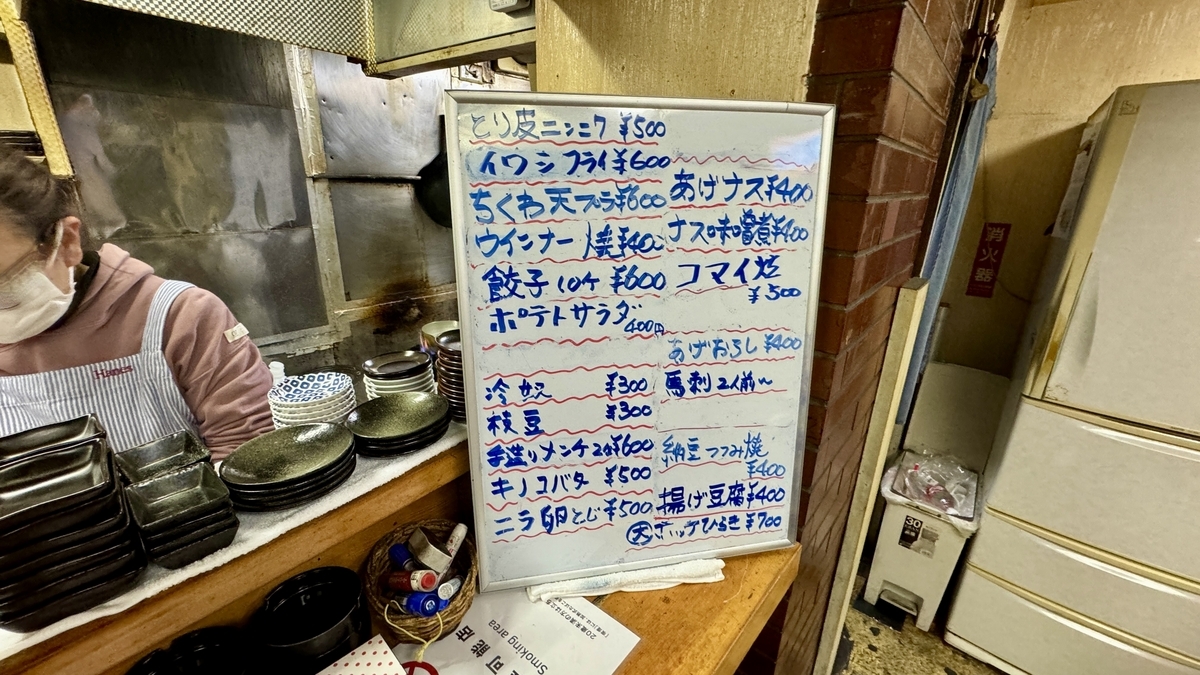 とり皮ニンニク ¥500
イワシフライ ¥600
ちくわ天プラ ¥600
ウインナー焼 ¥400
餃子 10ケ ¥600
ポテトサラダ 400円
冷奴 ¥300
枝豆 ¥300
手造りメンチ2ケ ¥600
キノコバタ ¥500
ニラ卵とじ ¥500
あげナス ¥400
ナス味噌煮 ¥400
コマイ焼
¥500
あげおろし ¥400
馬刺 2人前〜
納豆つつみ焼
¥400
揚げ豆腐 ¥400
大 ホッケひらき ¥700
Hanes
消火器
30
可能店
Smoking area